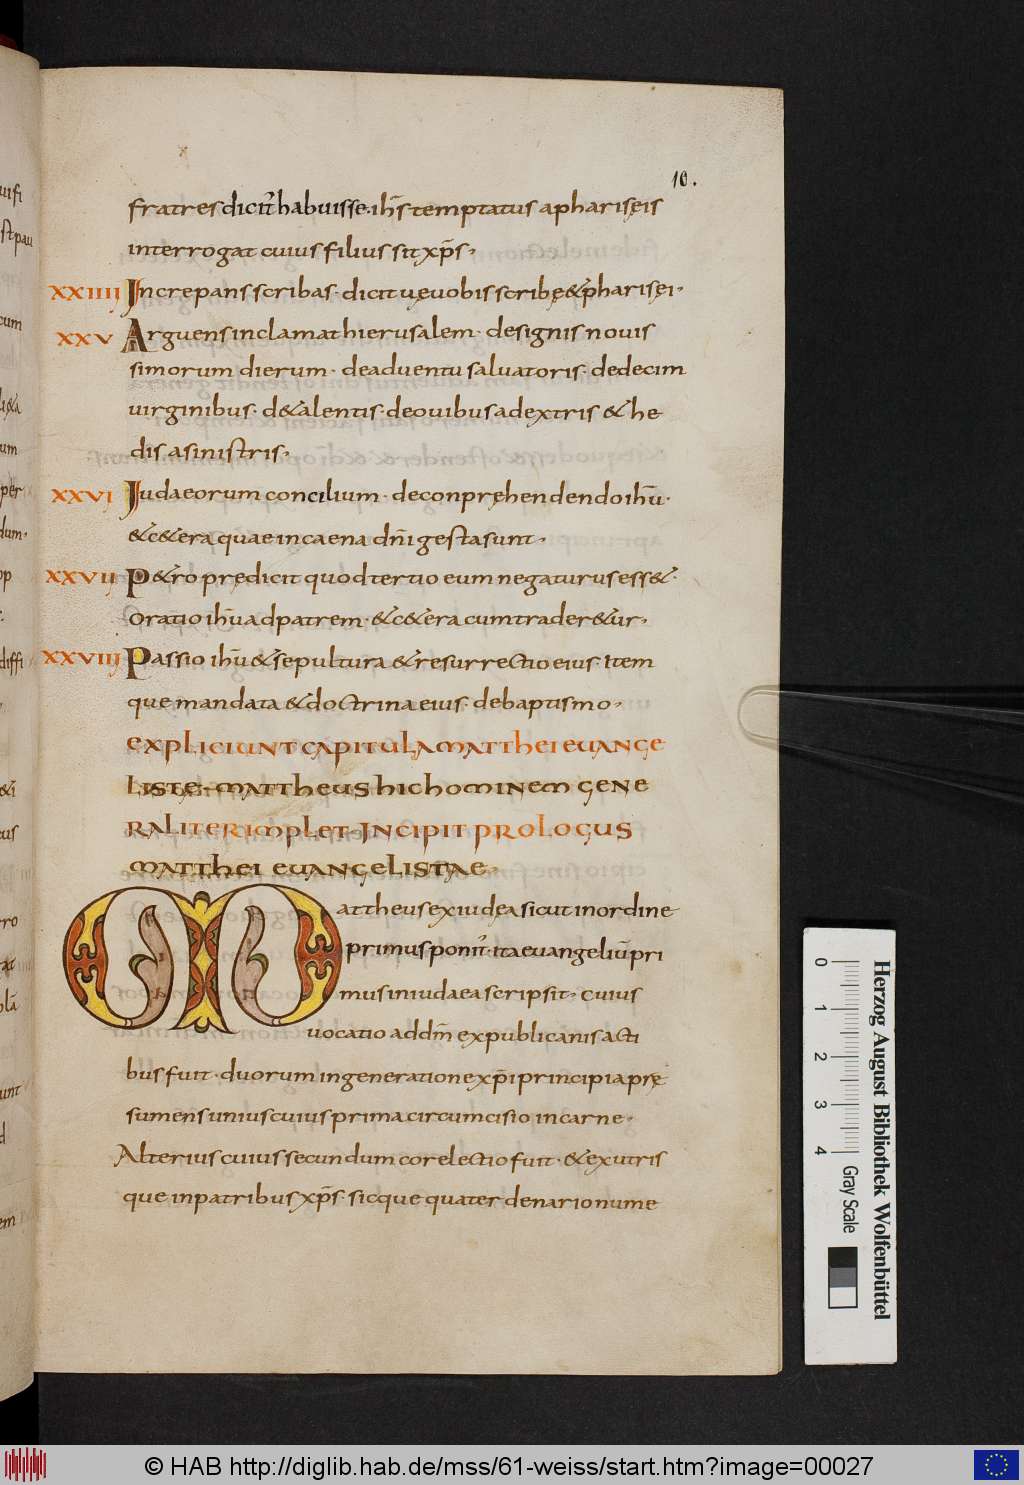 10.
fratres dicit᷒ habuisse. ih̅s temptatus apharisęis
interrogat cuius filius sit xp̅s.
XXIIII Increpans scribas· dicit uę uobis scribę & pharisęi.
XXV Arguens inclamat hierusalem· designis nouis
simorum dierum· deaduentu saluatoris· dedecim
uirginibus· d&alentis· deouibus adextris & he
dis asinistris.
XXVI Iudaeorum concilium· deconpręhendendo ihu̅·
&c&era quae incaena dn̅i gesta sunt.
XXVII P&ro prędicit quod tertio eum negaturus ess&·
oratio ihu̅ ad patrem· &c&era cum trader&ur.
XXVIII Passio ihu̅ & sepultura & resurrectio eius· Item
que mandata & doctrina eius· debaptismo.
EXPLICIUNT CAPITULA MATTHEI EUANGE
LISTE· MATTHEUS HIC HOMINEM GENE
RALITER IMPLET· INCIPIT PROLOGUS
MATTHEI EUANGELISTAE·
Mattheus ex iudęa sicut inordine
primus ponit᷒· ita euangeliu̅ pri
mus in iudaea scripsit· cuius
uocatio addm̅ expublicanis acti
bus fuit· duorum ingeneratione xp̅i principia prę
sumens unius cuius prima circumcisio incarne·
Alterius cuius secundum cor electio fuit· & exutris
que inpatribus xp̅s· sicque quater denario nume
Herzog August Bibliothek Wolfenbüttel
0 1 2 3 4 Gray Scale
© HAB http://diglib.hab.de/mss/61-weiss/start.htm?image=00027